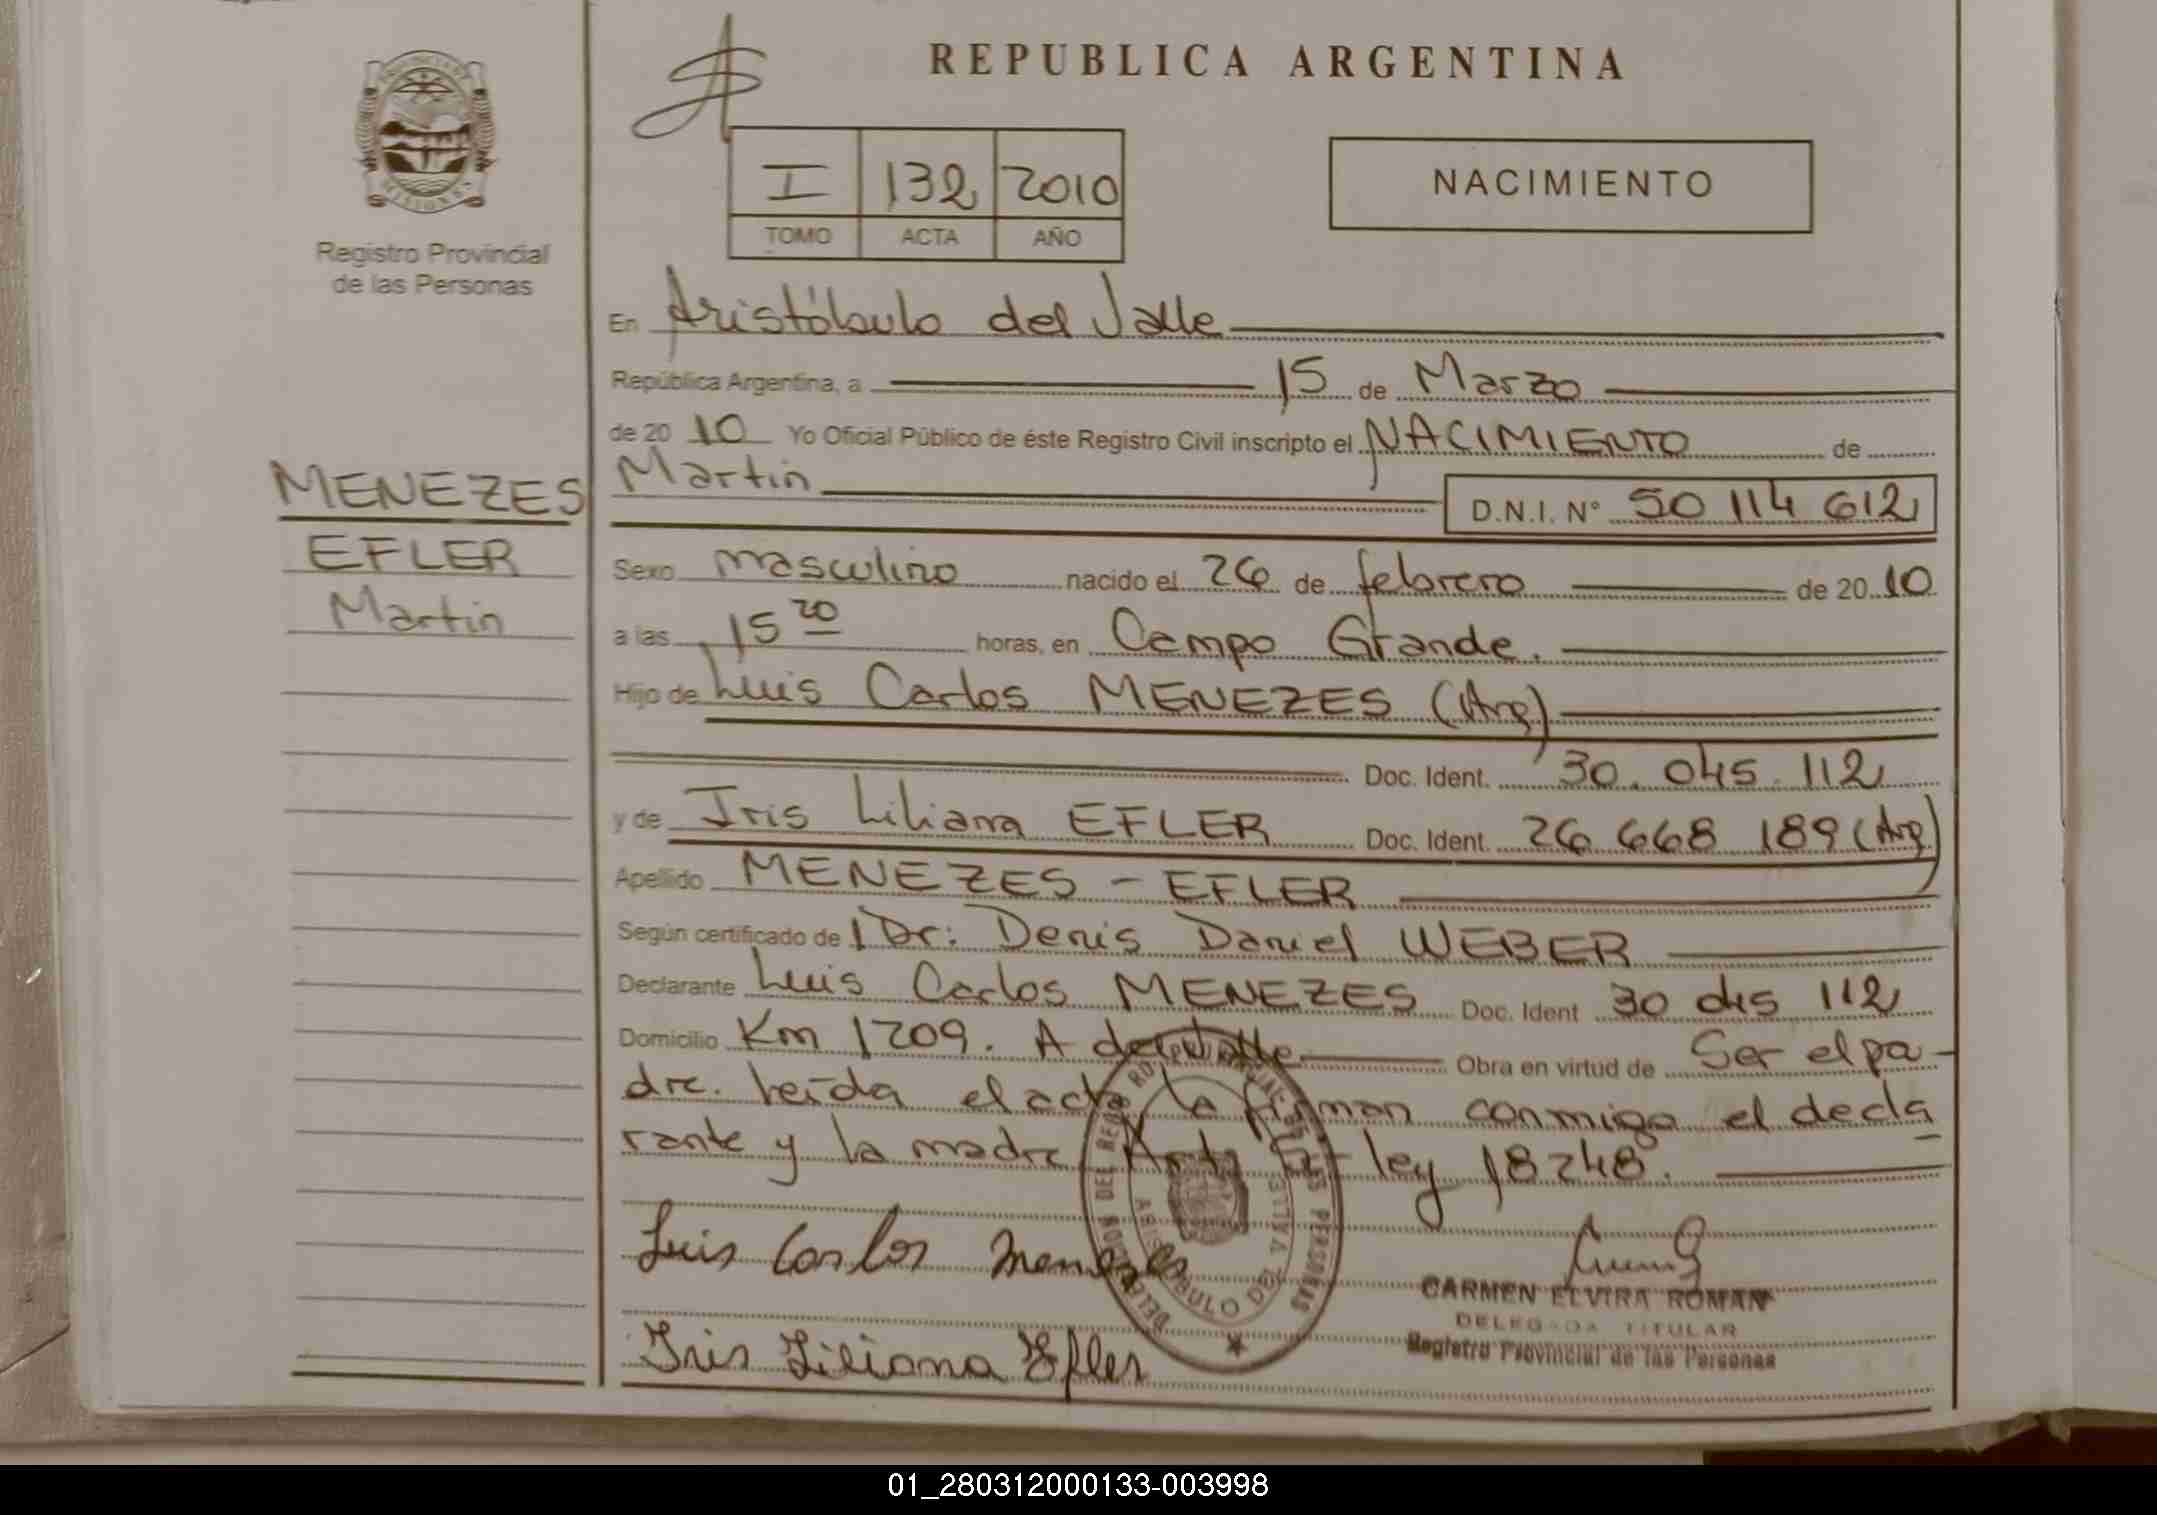 REPUBLICA ARGENTINA
PROVINCIA DE MISIONES
Registro Provincial
de las Personas
I 132 2010
TOMO ACTA AÑO
NACIMIENTO
En Aristóbulo del Valle
República Argentina, a 15 de Marzo
de 20 10 Yo Oficial Público de éste Registro Civil inscripto el NACIMIENTO de
MENEZES
EFLER
Martin
Martin D.N.I. Nº 50 114 612
Sexo masculino nacido el 26 de febrero de 20 10
a las 15 20 horas, en Campo Grande.
Hijo de Luis Carlos MENEZES (Arg)
Doc. Ident. 30.045.112
y de Iris Liliana EFLER Doc. Ident. 26 668 189 (Arg)
Apellido MENEZES - EFLER
Según certificado de Dr: Denis Daniel WEBER
Declarante Luis Carlos MENEZES Doc. Ident 30 045 112
Domicilio Km 1209. A del Valle Obra en virtud de Ser el pa-
dre. Leída el acta la firman conmigo el decla
rante y la madre ley 18248.
Luis Carlos Menezes
Iris Liliana Efler
DEL REGISTRO DE LAS PERSONAS
ARISTOBULO DEL VALLE
CARMEN ELVIRA ROMAN
DELEGADA TITULAR
Registro Provincial de las Personas
01_280312000133-003998